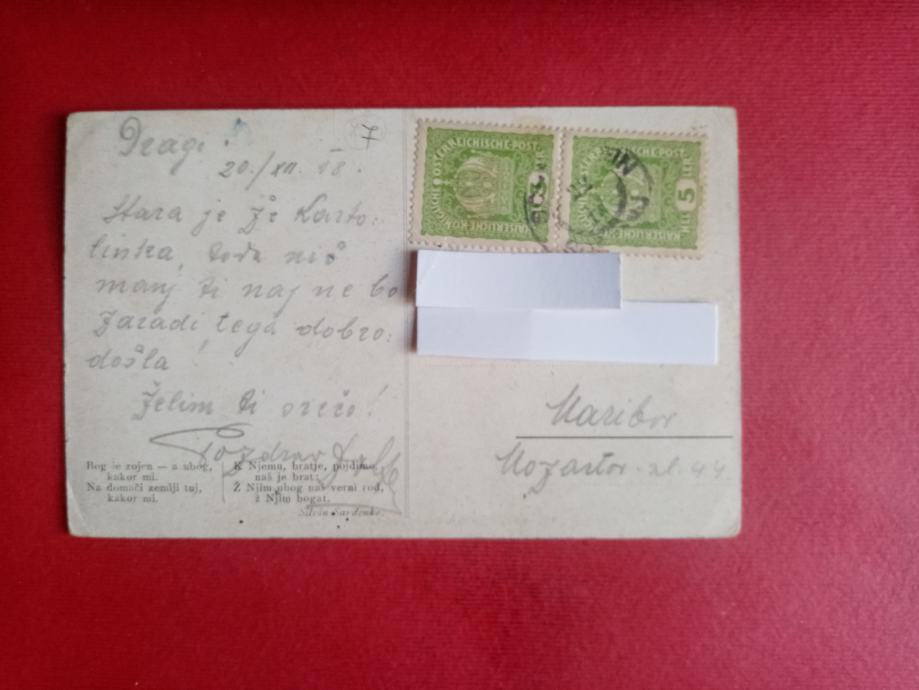 Dragi!
20./XII. 18.
Stara je že karto-
linka, toda nič
manj ti naj ne bo
zaradi tega dobro-
došla!
Želim ti srečo!
Pozdrav
Bog je rojen — a ubog,
kakor mi.
Na domači zemlji tuj,
kakor mi.
K Njemu, bratje, pojdimo,
naš je brat:
Ž Njim ubog naš verni rod,
ž Njim bogat.
Silvin Sardenko.
7
KAISERLICHE KÖNIGLICHE ÖSTERREICHISCHE POST
KAISERLICHE KÖNIGLICHE ÖSTERREICHISCHE POST
5 HELLER
Maribor
Mozartor. ul. 44